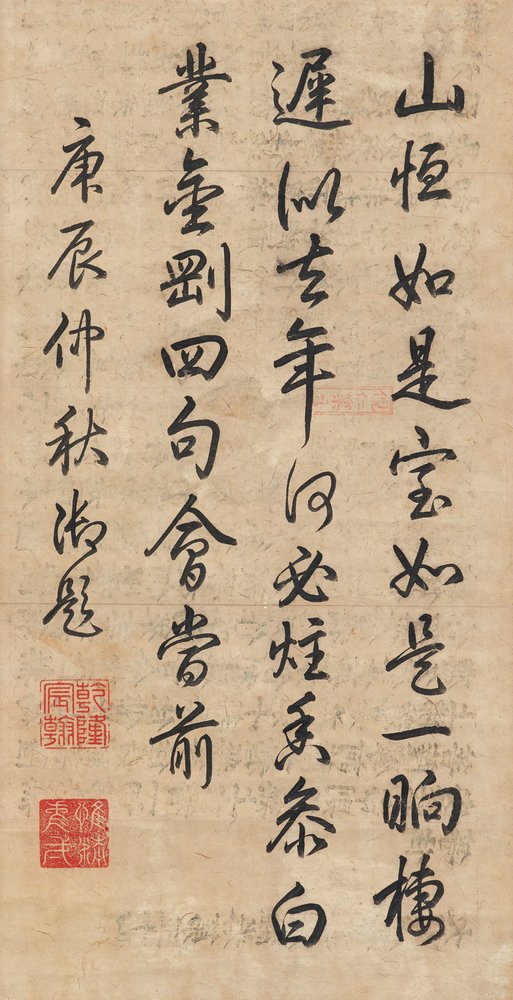 山恒如是室如是一晌棲
遲似去年何必炷香參白
業金剛四句會當前
庚辰仲秋御題
乾隆宸翰
惟精惟一